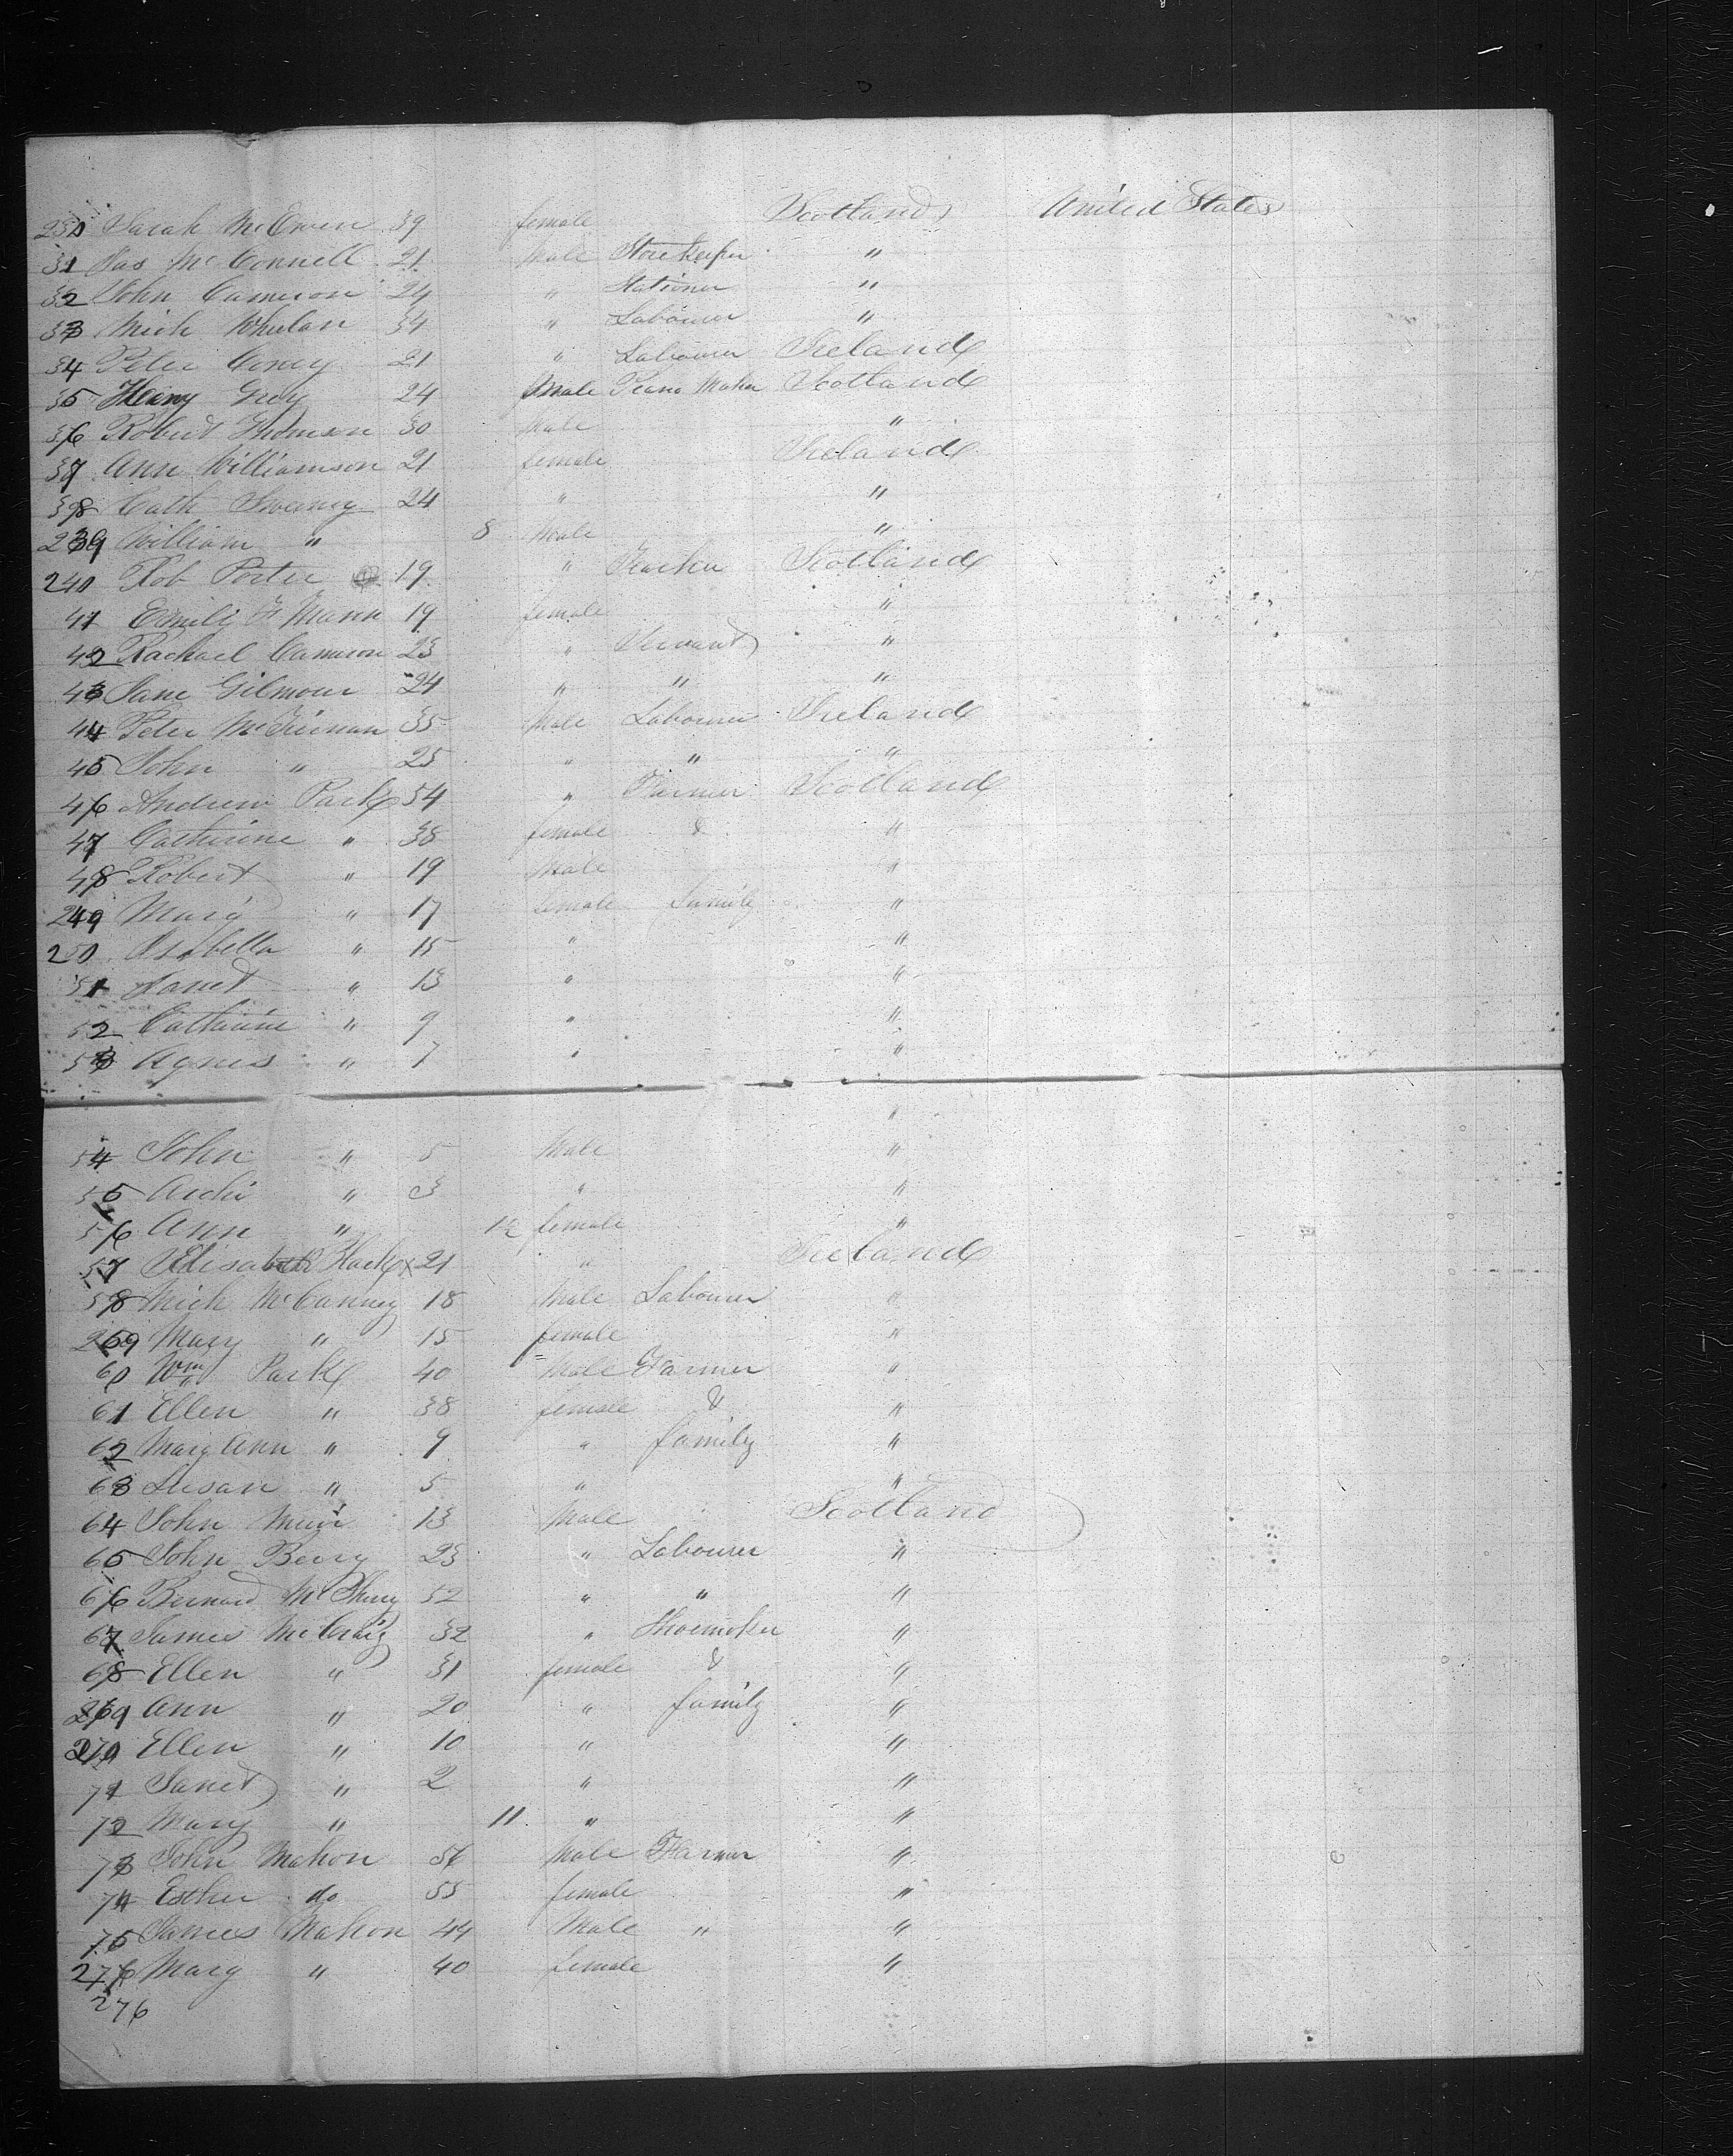 230 Sarah McEwen 39 female Scotland United States
31 Jas McConnell 21 Male Storekeeper "
32 John Cameron 24 " Stationer "
33 Mich Whelan 34 " Labourer "
34 Peter 21 " Labourer Ireland
35 Henry Grey 24 Male Piano Maker Scotland
36 Robert Thomson 30 Male "
37 Ann Williamson 21 female Ireland
38 Cath Sweeney 24 " "
239 William " 8 Male "
240 Rob Porter 19 " Scotland
41 Emily Mann 19 female "
42 Rachael Cameron 23 " Servant "
43 Jane Gilmour 24 " " "
44 Peter McTiernan 35 Male Labourer Ireland
45 John " 25 " " "
46 Andrew Park 54 " Farmer Scotland
47 Catherine " 38 female & "
48 Robert " 19 Male "
249 Mary " 17 female family "
250 Isabella " 15 " "
51 Janet " 13 " "
52 Catherine " 9 " "
53 Agnes " 7 " "
"
54 John " 5 Male "
55 Archi " 3 " "
56 Ann " female "
57 Elisabeth 21 " Ireland
58 Mich McCanney 18 Male Labourer "
Mary " 15 female "
60 Wm Park 40 Male Farmer "
61 Ellen " 38 female & "
62 Mary Ann " 9 " family "
63 Susan " 5 " "
64 John Muir 13 Male Scotland
65 John Berry 23 " Labourer "
66 Bernard 52 " " "
67 James McCraig 32 " Shoemaker "
68 Ellen " 31 female & "
269 Ann " 20 " family "
270 Ellen " 10 " "
71 Janet " 2 " "
72 Mary " 11 " "
73 John Mahon Male Farmer "
74 Esther do 55 female "
75 James Mahon 44 Male " "
276 Mary " 40 female "
276